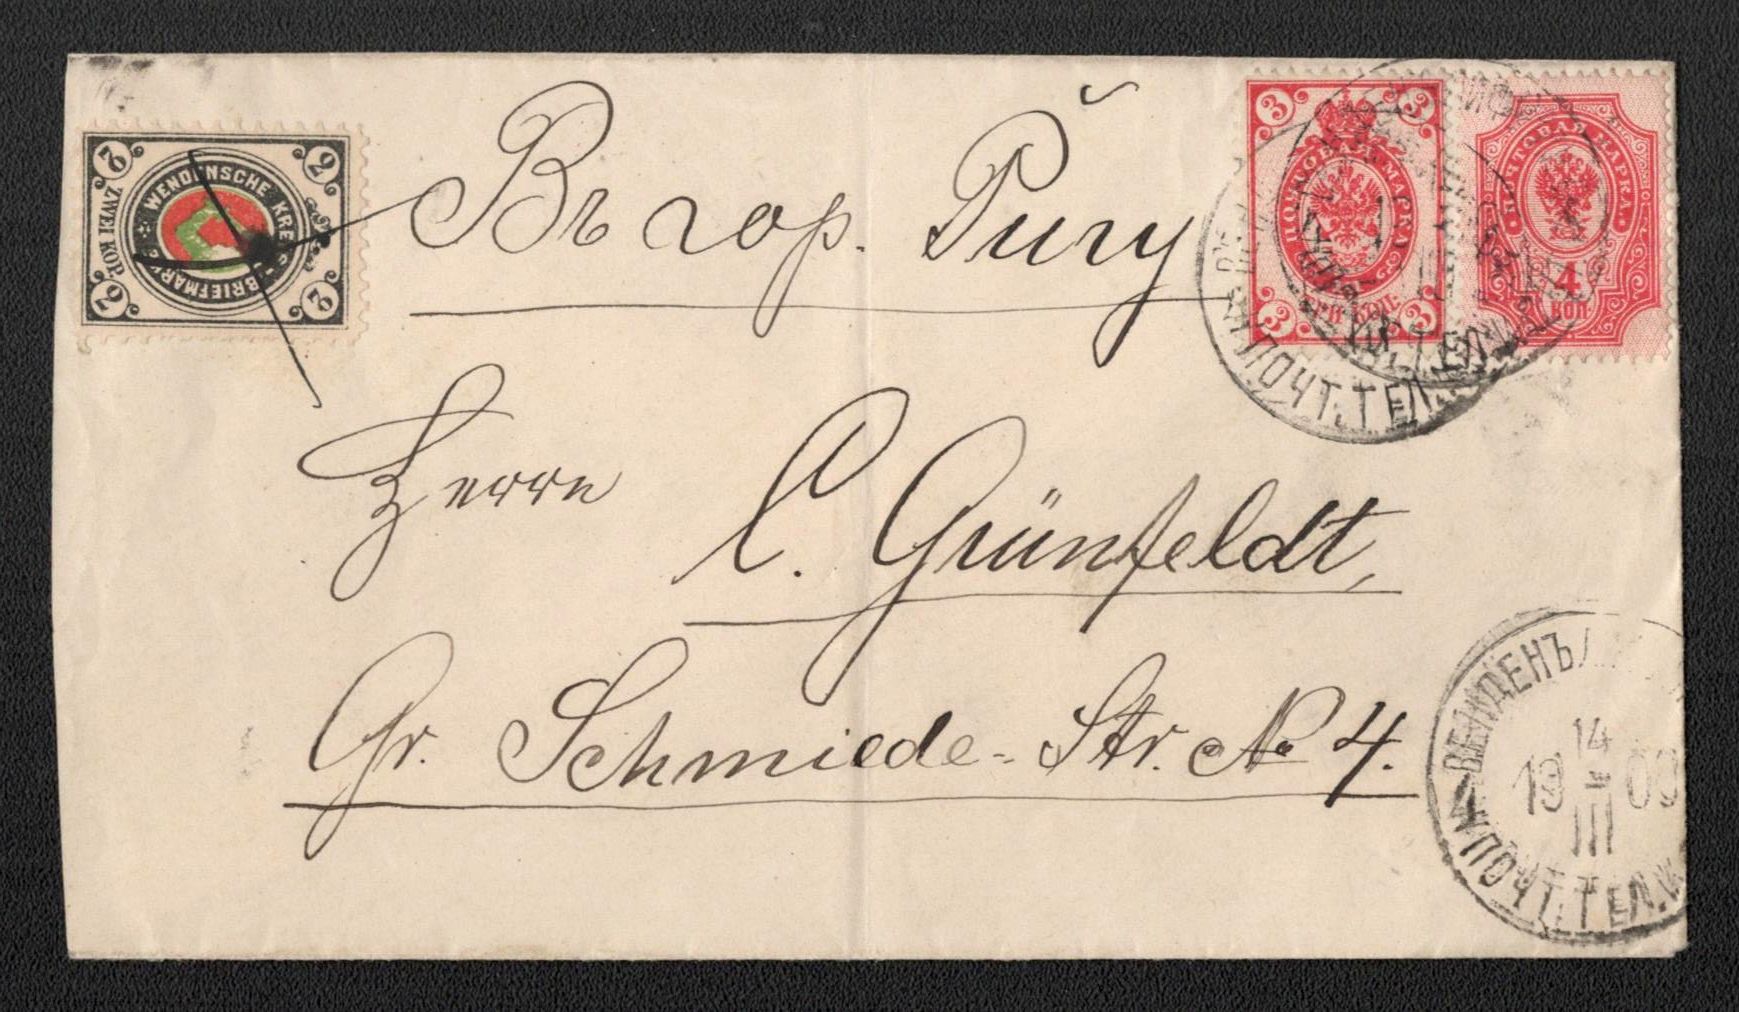 Въ гор. Ригу
Herrn
C. Grünfeldt,
Gr. Schmiede-Str. № 4.
2 2 2 2
WENDENSCHE KREIS-BRIEFMARKE
ZWEI KOP.
3 3 3 3
ПОЧТОВАЯ МАРКА
ТРИ КОП.
ПОЧТОВАЯ МАРКА
4
КОП.
ПОЧТ.ТЕЛ.
ВЕНДЕНЪ
14
19 00
III
ПОЧТ.ТЕЛ.К